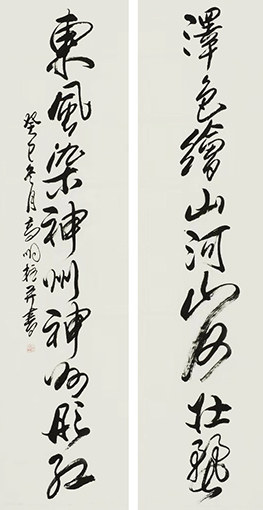 澤色繪山河山河壯
東風染神州神州彤紅
癸巳冬月高明柱并書